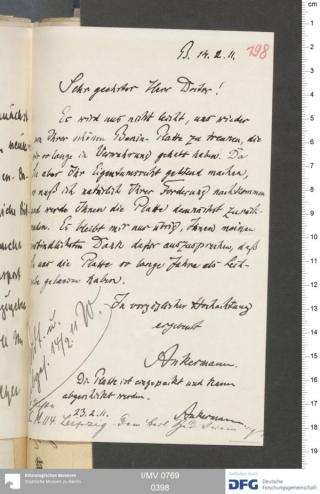 B. 14.2.11.
198
Sehr geehrter Herr Doktor!
Es wird uns nicht leicht, uns wieder
von Ihrer schönen Benin-Platte zu trennen, die
wir so lange in Verwahrung gehabt haben. Da
Sie aber Ihr Eigentumsrecht geltend machen,
so muß ich natürlich Ihrer Forderung nachkommen
und werde Ihnen die Platte demnächst zurück-
senden. Es bleibt mir nur übrig, Ihnen meinen
verbindlichsten Dank dafür auszusprechen, daß
Sie uns die Platte so lange Jahre als Leih-
gabe gelassen haben.
In vorzüglicher Hochachtung
ergebenst
Ankermann.
14/2 11 W.
Die Platte ist eingepackt und kann
abgeschickt werden.
23.2.11. Ankermann
Leipzig
Ethnologisches Museum
Staatliche Museen zu Berlin
I/MV 0769
0398
Gefördert durch
DFG Deutsche
Forschungsgemeinschaft
1
2
3
4
5
6
7
8
9
10
11
12
13
14
15
16
17
18
19